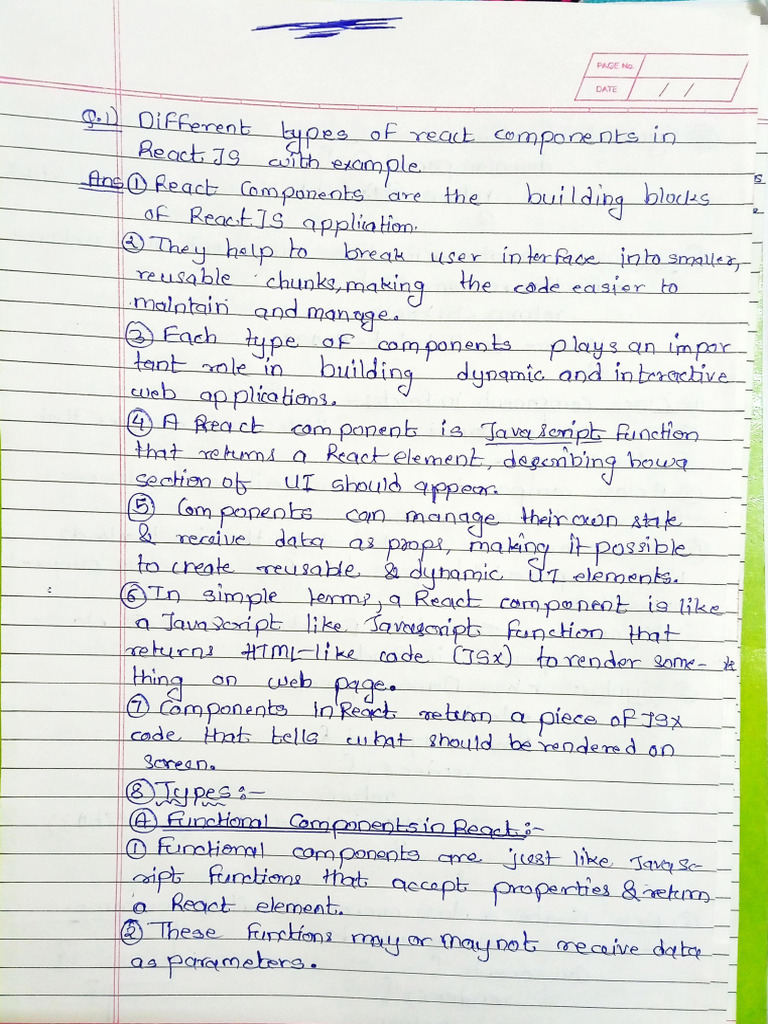 PAGE No.
DATE / /
Q.1) Different types of react components in
React JS with example.
Ans ① React Components are the building blocks
of React JS application.
② They help to break user interface into smaller,
reusable chunks, making the code easier to
maintain and manage.
③ Each type of components plays an impor
tant role in building dynamic and interactive
web applications.
④ A React component is Javascript function
that returns a React element, describing how a
section of UI should appear.
⑤ Components can manage their own state
& receive data as props, making it possible
to create reusable & dynamic UI elements.
⑥ In simple terms, a React component is like
a Javascript like Javascript function that
returns HTML-like code (JSX) to render some-
thing on web page.
⑦ Components in React return a piece of JSX
code that tells what should be rendered on
screen.
⑧ Types :-
Ⓐ Functional Components in React :-
① Functional components are just like Javasc-
ript functions that accept properties & return
a React element.
② These functions may or may not receive data
as parameters.